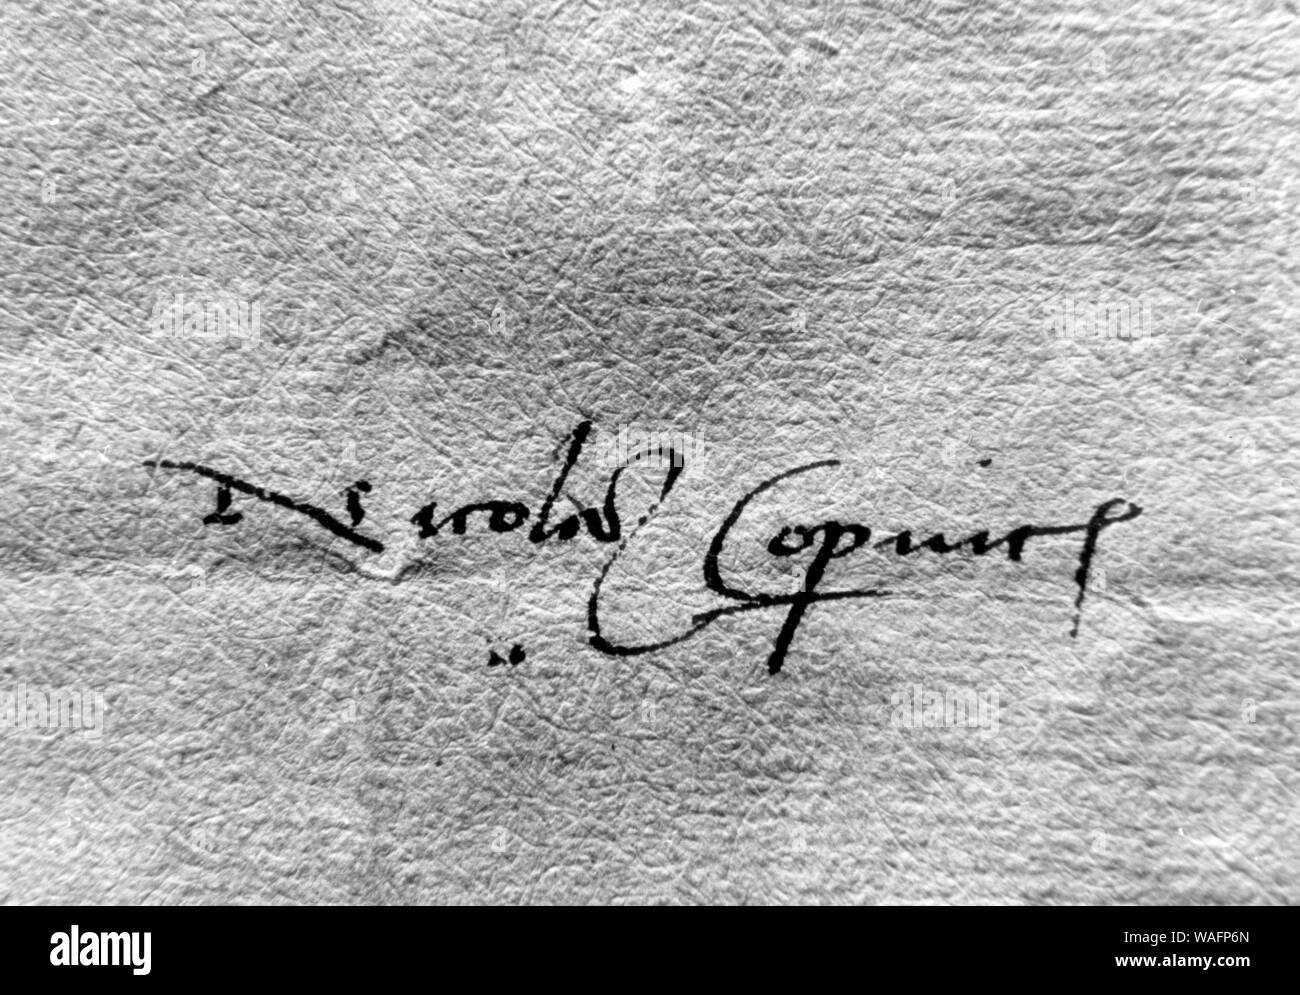 Nicolaus Copnic
alamy
Image ID: WAFP6N
www.alamy.com